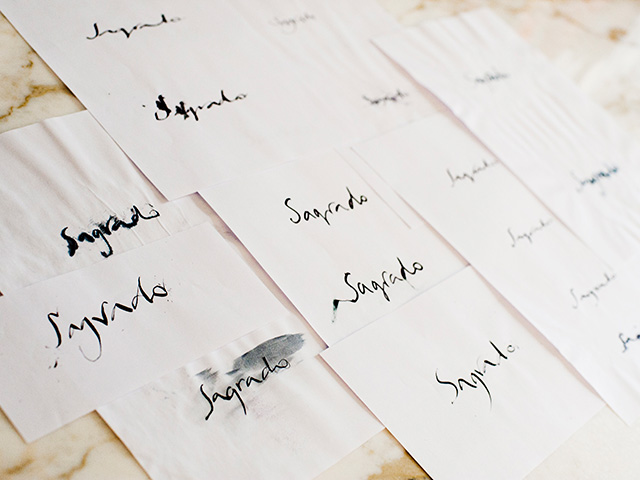 Sagrado
Sagrado
Sagrado
Sagrado
Sagrado
Sagrado
Sagrado
Sagrado
Sagrado
Sagrado
Sagrado
Sagrado